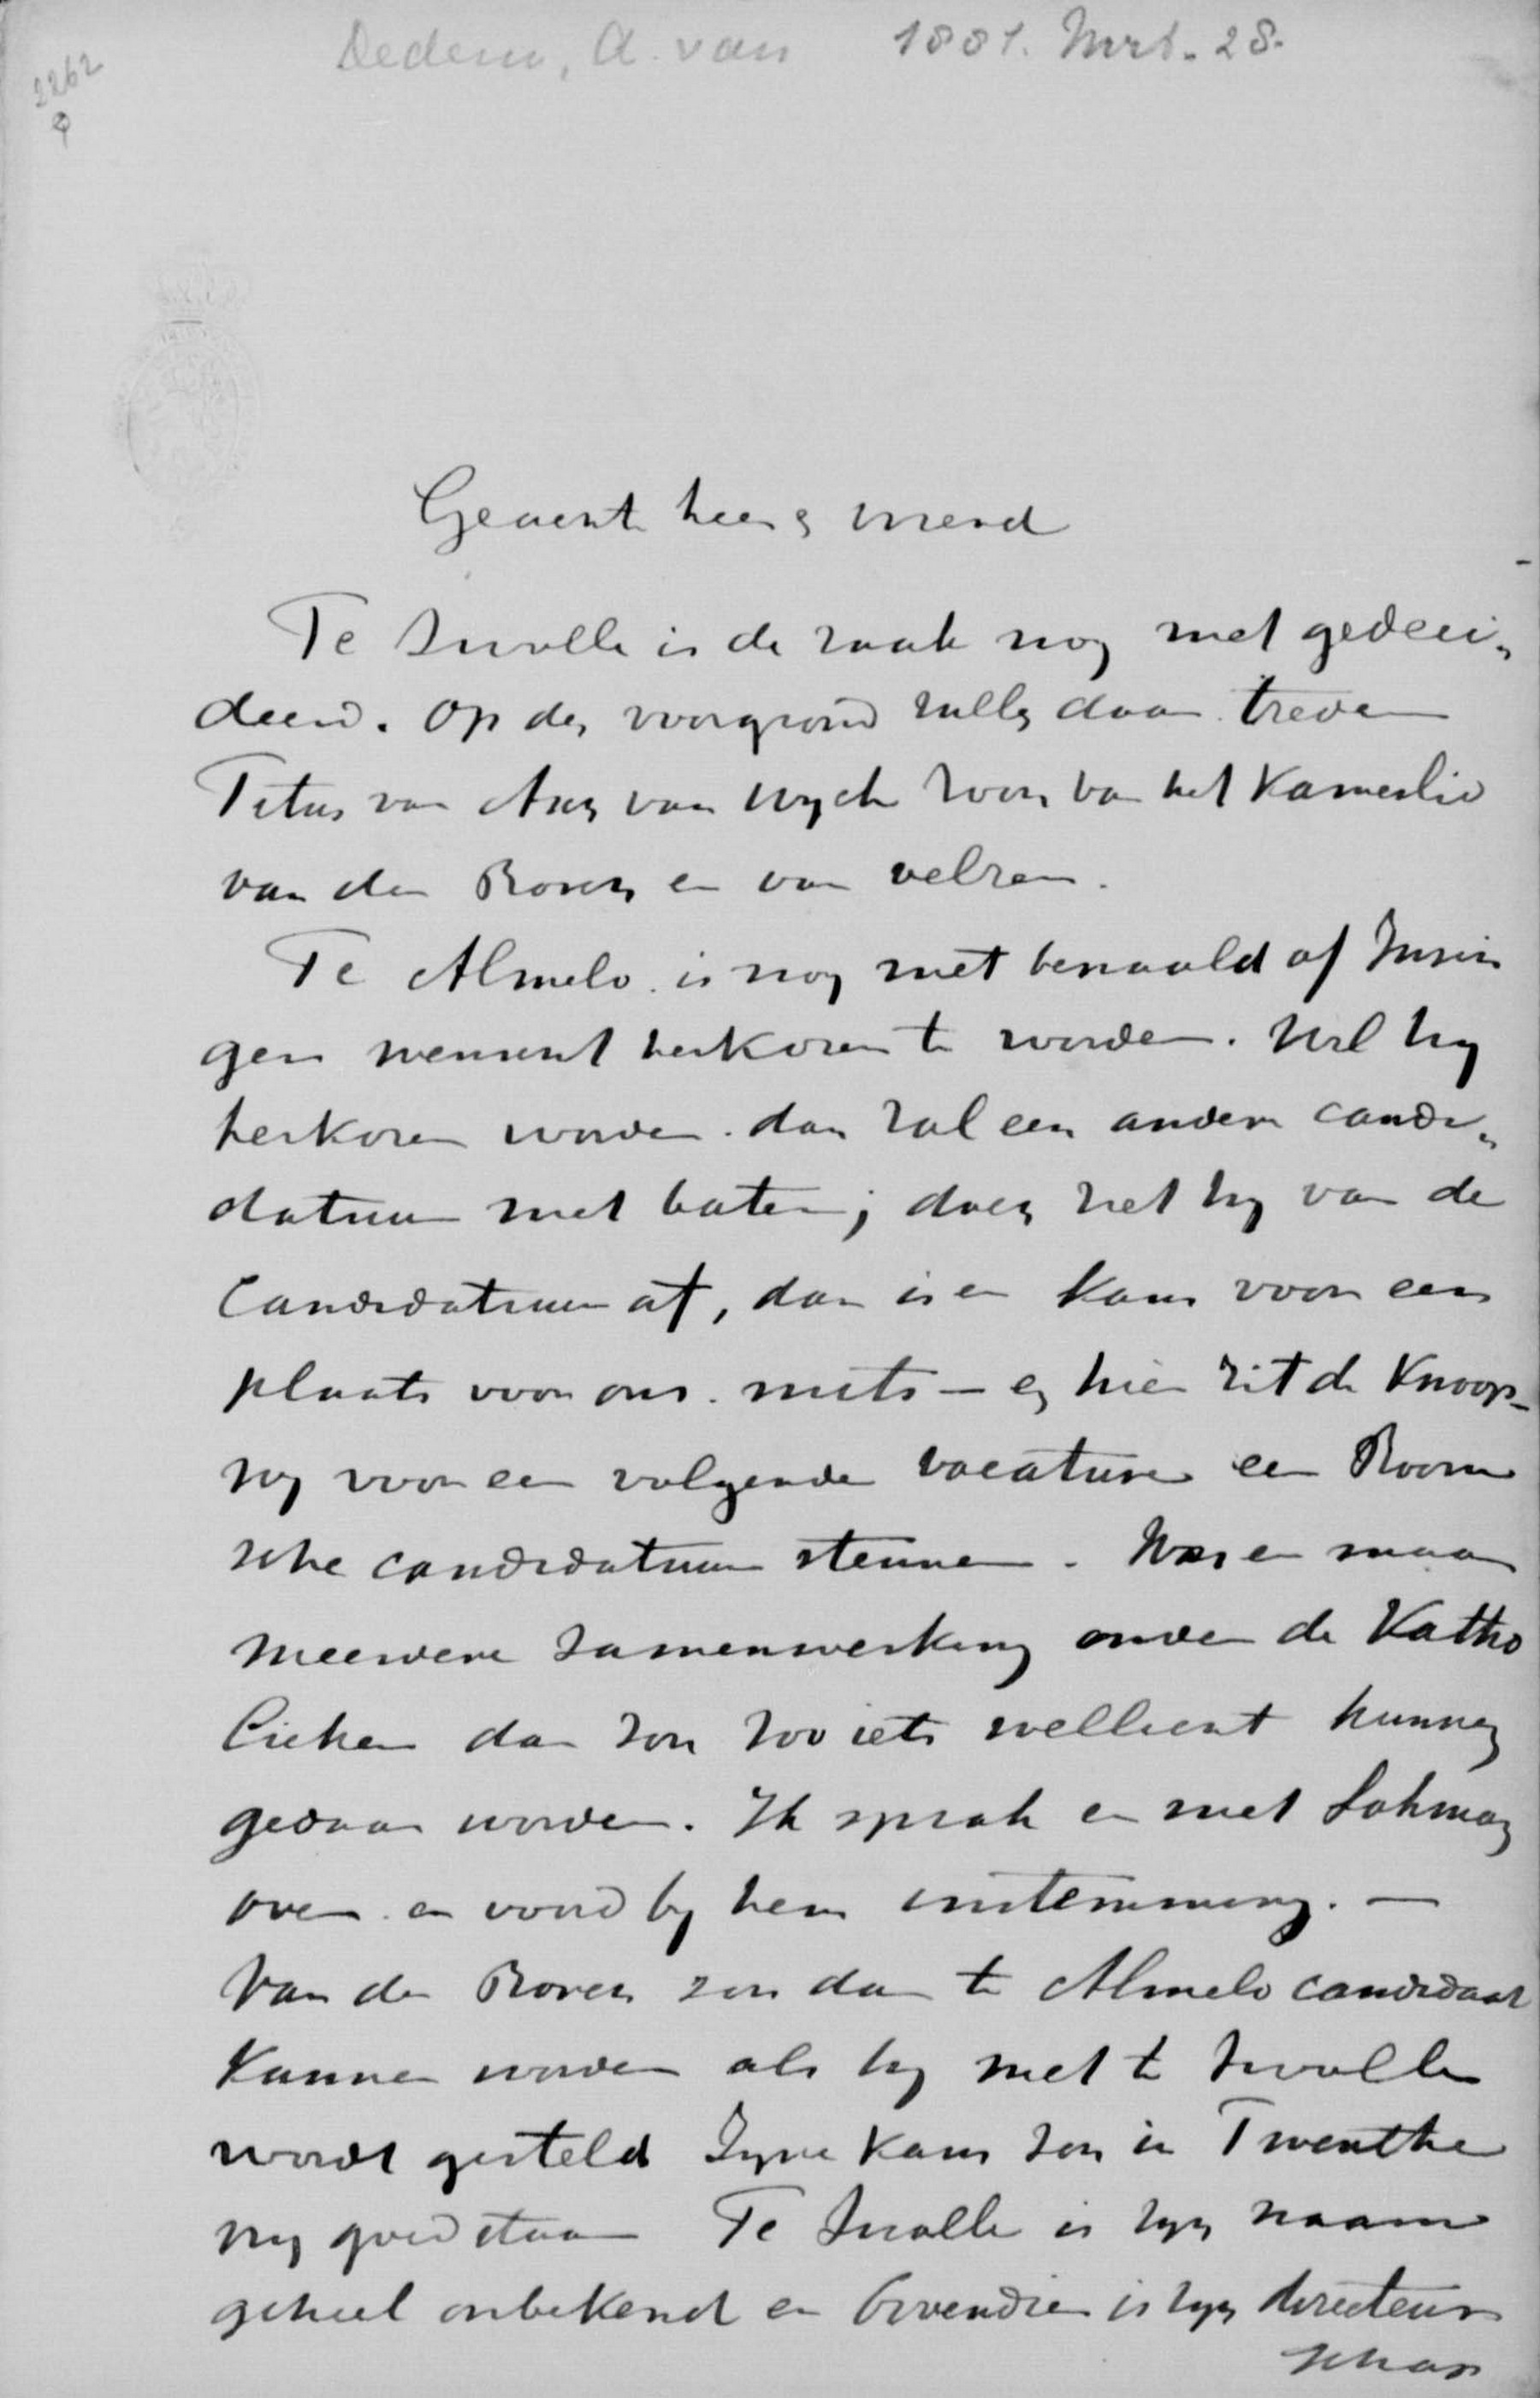 Dedem, A. van 1881. Mrt. 28.
2262
Geacht heer & vriend
Te Zwolle is de zaak nog niet gedeci„
deerd. Op den voorgrond zullen daar treden
Titus van Asch van Wyck zoon van het Kamerlid
van den Bosch en van Velzen.
Te Almelo is nog niet bepaald of Insin
ger wenscht herkozen te worden. Wil hy
herkozen worden dan zal een andere candi„
datuur niet baten; doch ziet hy van de
Candidatuur af, dan is er kans voor een
plaats voor ons. mits – en hier zit de Knoop –
wy voor een volgende vacature een Room
sche candidatuur steunen. Was er maar
meerdere samenwerking onder de Katho
lieken dan zou zoo iets wellicht kunnen
gedaan worden. Ik sprak er met Lohman
over en vond by hem instemming. —
Van den Bosch zou dan te Almelo candidaat
Kunnen worden als hy niet te Zwolle
wordt gesteld Zyne kans zou in Twenthe
vry goed staan Te Zwolle is zyn naam
geheel onbekend en bovendien is zyn directeur
schap